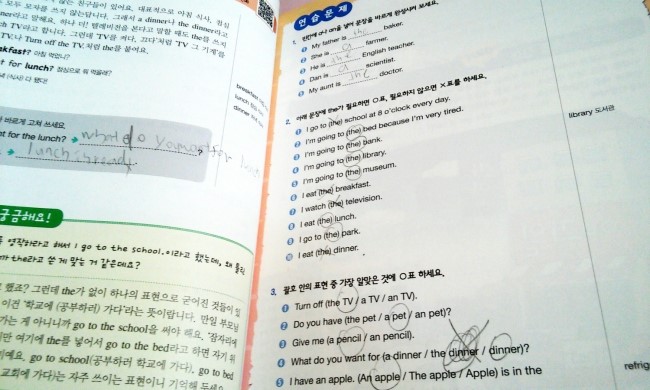 모두 모자를 쓰지 않는답니다. 그래서 a dinner나 the dinner라고
TV라고 합니다. 그런데 TV를 켜다, 끄다처럼 'TV 그 기계'를
TV나 Turn off the TV.처럼 the를 붙여요.
breakfast
lunch
dinner
바르게 고쳐 쓰세요.
for the lunch?
궁금해요!
영작하라고 해서 I go to the school.이라고 했는데, 왜 틀린
the라고 쓴 게 맞는 거 같은데요?
했죠? 그런데 the가 없이 하나의 표현으로 굳어진 것들이 있
이건 '학교에 (공부하러) 가다'라는 뜻이랍니다. 만일 부모님
가는 게 아니니까 go to the school을 써야 해요. '잠자리에
만 여기에 the를 넣어서 go to the bed라고 하면 자기 위
예요. go to school(공부하러 학교에 가다), go to bed
교회에 가다)는 자주 쓰이는 표현이니 기억해 두세요.
연습문제
1. 빈칸에 a나 an을 넣어 문장을 바르게 완성시켜 보세요.
1 My father is the baker.
2 She is a farmer.
3 He is the English teacher.
4 Dan is a scientist.
5 My aunt is the doctor.
2. 아래 문장에 the가 필요하면 ○표, 필요하지 않으면 ×표를 하세요.
1 I go to (the) school at 8 o'clock every day.
2 I'm going to (the) bed because I'm very tired.
3 I'm going to (the) bank.
4 I'm going to (the) library.
5 I'm going to (the) museum.
6 I eat (the) breakfast.
7 I watch (the) television.
8 I eat (the) lunch.
9 I go to (the) park.
10 I eat (the) dinner.
library 도서관
3. 괄호 안의 표현 중 가장 알맞은 것에 ○표 하세요.
1 Turn off (the TV / a TV / an TV).
2 Do you have (the pet / a pet / an pet)?
3 Give me (a pencil / an pencil).
4 What do you want for (a dinner / the dinner / dinner)?
5 I have an apple. (An apple / The apple / Apple) is in the